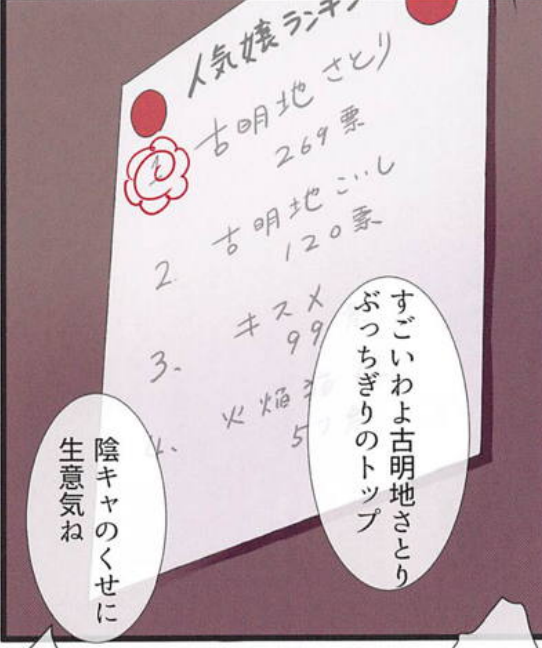 人気嬢ランキン
1 古明地さとり
269票
2. 古明地こいし
120票
3. キスメ
99
4. 火焔猫
5
すごいわよ古明地さとり
ぶっちぎりのトップ
陰キャのくせに
生意気ね